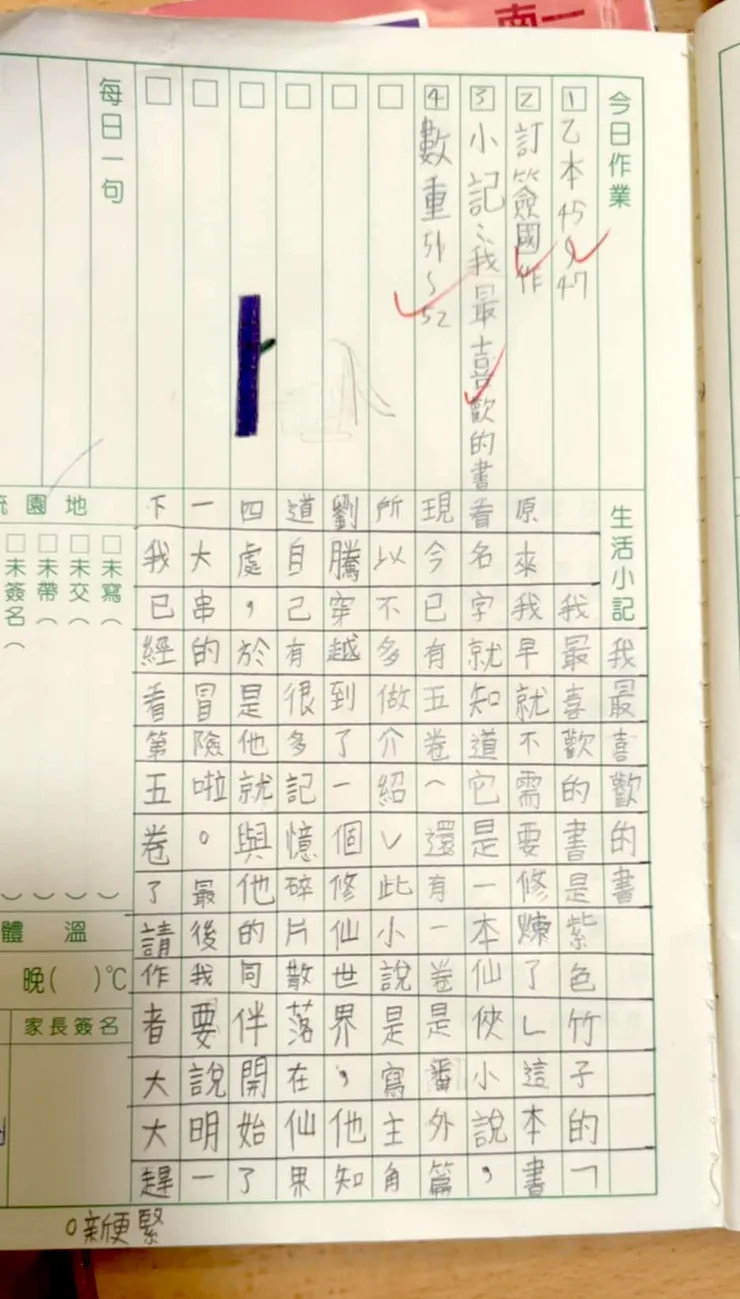 南一
今日作業
1 乙本45~47
2 訂簽國作
3 小記：我最喜歡的書
4 數重51~52
每日一句
生活小記
我最喜歡的書
我最喜歡的書是紫色竹子的「
原來我早就不需要修煉了」這本書
看名字就知道它是一本仙俠小說，
現今已有五卷（還有一卷是番外篇
所以不多做介紹）此小說是寫主角
劉騰穿越到了一個修仙世界，他知
道自己有很多記憶碎片散落在仙界
四處，於是他就與他的同伴開始了
一大串的冒險啦。最後我要說明一
下我已經看第五卷了請作者大大趕
緊便新。
流園地
□未寫（ ）
□未交（ ）
□未帶（ ）
□未簽名（ ）
體溫
晚( )℃
家長簽名